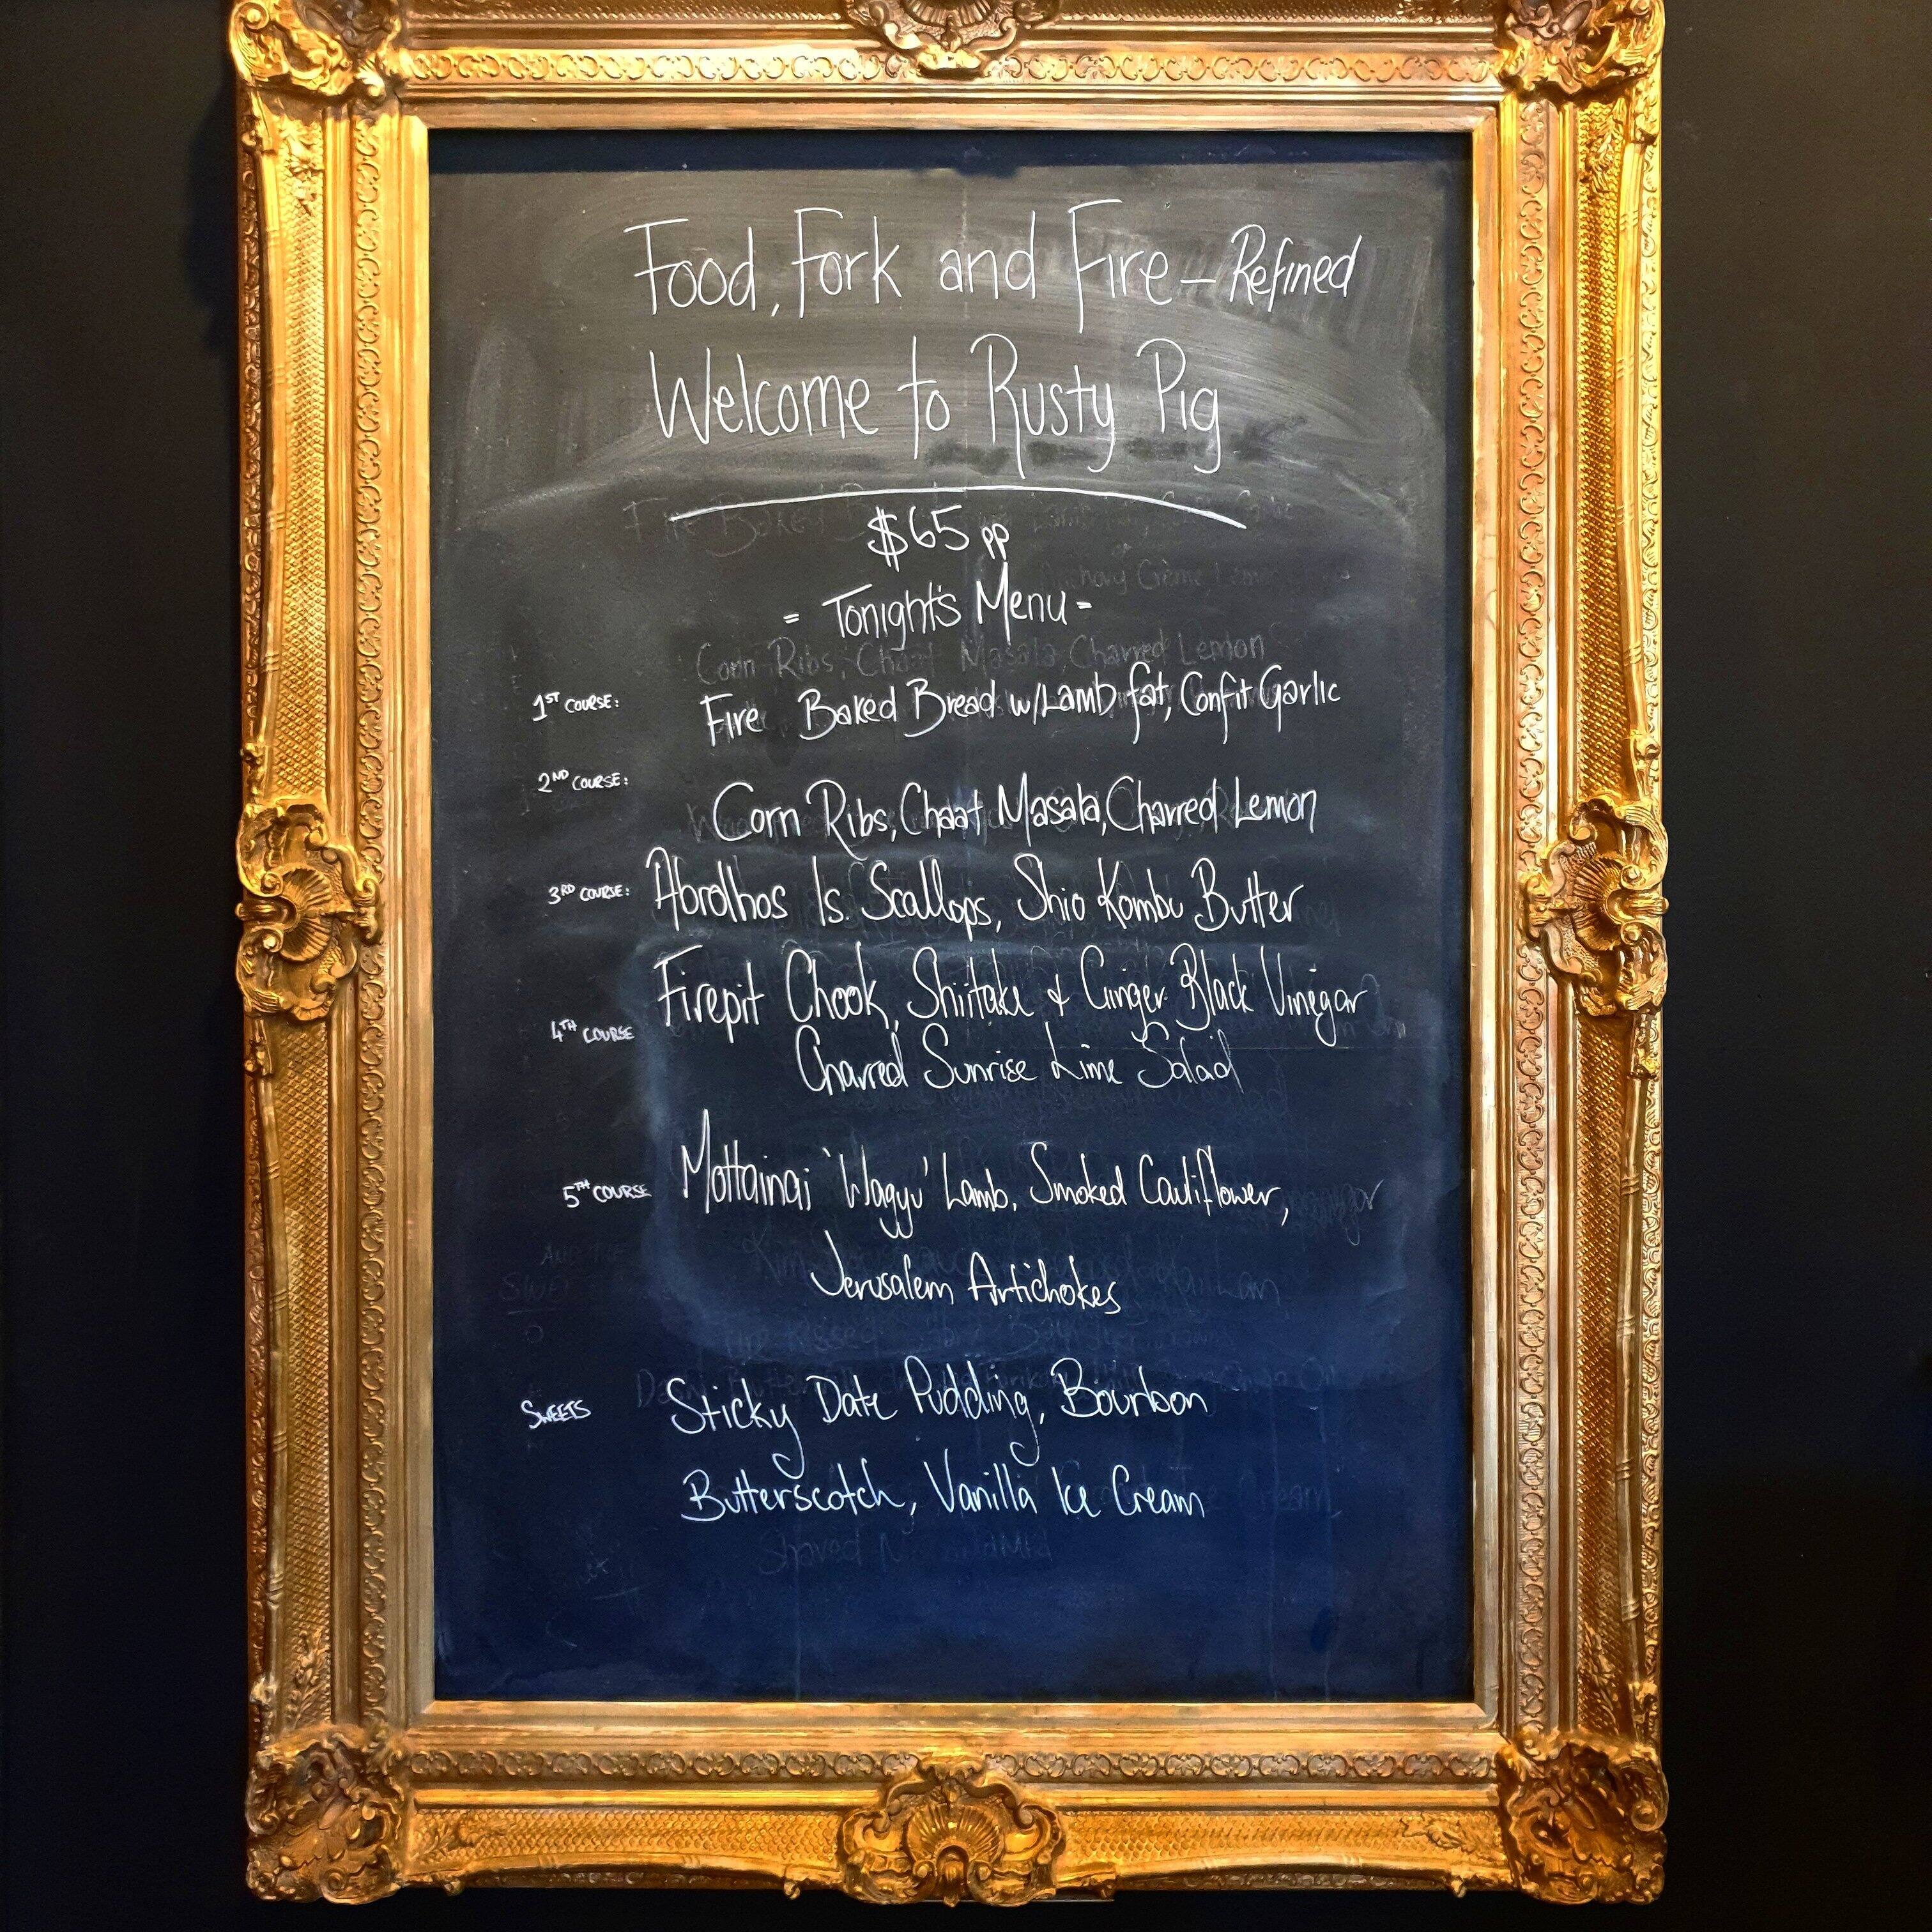 Food, Fork and Fire – Refined
Welcome to Rusty Pig
$65 pp
= Tonight's Menu =
Corn Ribs, Chaat Masala, Charred Lemon
1ST COURSE: Fire Baked Bread w/Lamb fat, Confit Garlic
2ND COURSE:
Corn Ribs, Chaat Masala, Charred Lemon
3RD COURSE: Abrolhos Is. Scallops, Shio Kombu Butter
Firepit Chook, Shiitake + Ginger Black Vinegar
4TH COURSE
Charred Sunrise Lime Salad
5TH COURSE Mottainai 'Wagyu' Lamb, Smoked Cauliflower,
Jerusalem Artichokes
SWEETS Sticky Date Pudding, Bourbon
Butterscotch, Vanilla Ice Cream
Shaved